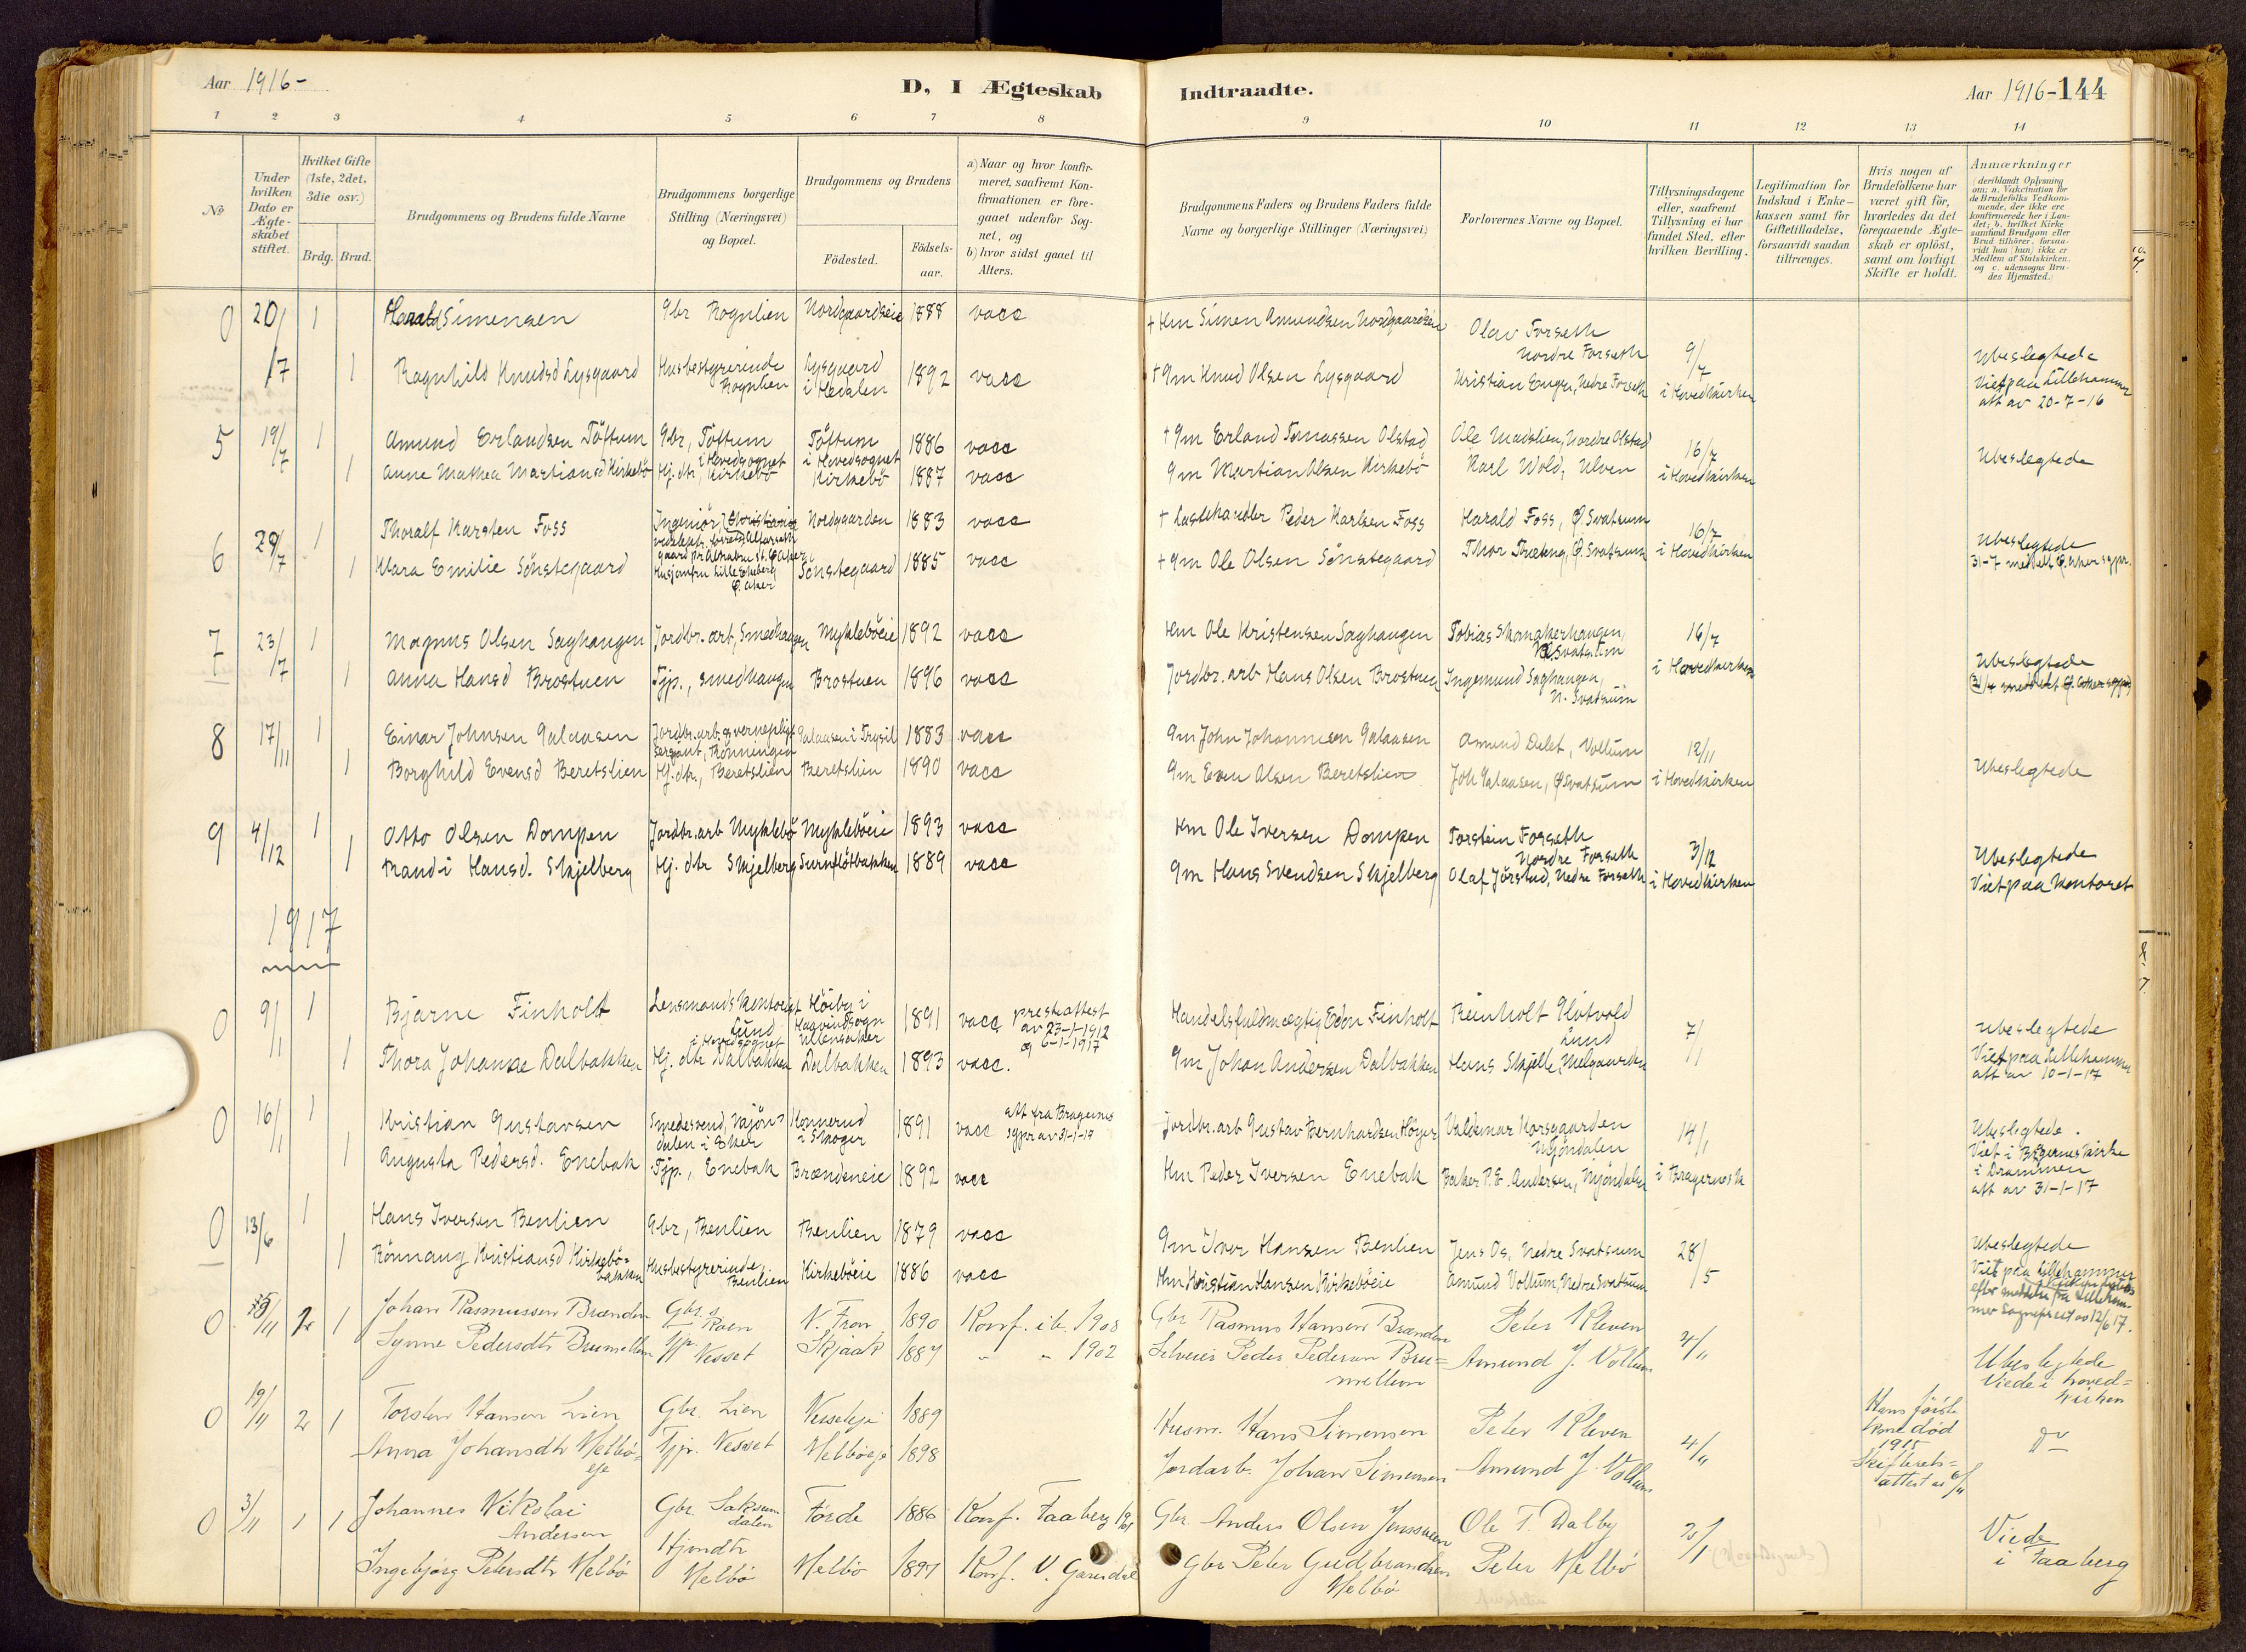 Aar 1916-
D, I Ægteskab Indtraadte.
Aar 1916- 144
1 2 3 4 5 6 7 8 9 10 11 12 13 14
No
Under hvilken Dato er Ægteskabet stiftet.
Hvilket Gifte (1ste, 2det, 3die osv.)
Brdg. Brud.
Brudgommens og Brudens fulde Navne
Brudgommens borgerlige Stilling (Næringsvei) og Bopæl.
Brudgommens og Brudens
Födested.
Födselsaar.
a) Naar og hvor konfirmeret, saafremt Konfirmationen er foregaaet udenfor Sognet, og
b) hvor sidst gaaet til Alters.
Brudgommens Faders og Brudens Faders fulde Navne og borgerlige Stillinger (Næringsvei)
Forlovernes Navne og Bopæl.
Tillysningsdagene eller, saafremt Tillysning ei har fundet Sted, efter hvilken Bevilling.
Legitimation for Indskud i Enkekassen samt for Giftetilladelse, forsaavidt saadan tiltrænges.
Hvis nogen af Brudefolkene har været gift för, hvorledes da det foregaaende Ægteskab er oplöst, samt om lovligt Skifte er holdt.
Anmærkninger (deriblandt Oplysning om: a. Vakcination for de Brudefolks Vedkommende, der ikke ere konfirmerede her i Landet; b. hvilket Kirkesamfund Brudgom eller Brud tilhörer, forsaavidt han (hun) ikke er Medlem af Statskirken. og c. udensogns Brudes Hjemsted.)
0 20/7 1 Harald Simensen Gbr Rognlien Nordgaardseie 1888 vacc + Hm Simen Amundsen Nordgaardseie Olav Forseth Nordre Forseth 9/7
1 Ragnhild Knudsd Lysgaard Husbestyrerinde Rognlien Lysgaard i Hedalen 1892 vacc + Gm Knud Olsen Lysgaard Kristian Enger, Nedre Forseth i Hovedkirken Ubeslegtede Viet paa Lillehammer att av 20-7-16
5 19/7 1 Amund Erlandsen Töftum Gbr, Töftum i Hovedsognet Töftum i Hovedsognet 1886 vacc + Gm Erland Tomassen Olstad Ole Madslien, Nordre Olstad 16/7
1 Anne Mathea Martiansd Kirkebö Hj. dtr, Kirkebö Kirkebö 1887 vacc Gm Martian Olsen Kirkebö Karl Wold, Ulven i Hovedkirken Ubeslegtede
6 29/7 1 Thoralf Karsten Foss Ingeniör, Christiania Nordgaarden 1883 vacc + Lastehandler Peder Karlsen Foss Harald Foss, Ö. Svatsum 16/7
1 Klara Emilie Sönstegaard Husjomfru Lille Ekeberg Ö. Aker Sönstegaard 1885 vacc + Gm Ole Olsen Sönstegaard Thor Træteng, Ö. Svatsum i Hovedkirken Ubeslegtede 31-7 meddelt Ö. Aker sgpr.
7 23/7 1 Magnus Olsen Saghaugen Jordbr. arb, Smedhaugen Mykleböeie 1892 vacc Hm Ole Kristensen Saghaugen Tobias Skomakerhaugen, Svatsum 16/7
1 Anna Hansd Brostuen Tjp., Smedhaugen Brostuen 1896 vacc Jordbr. arb Hans Olsen Brostuen Ingemund Saghaugen, N. Svatsum i Hovedkirken Ubeslegtede
8 17/11 1 Einar Johnsen Galaasen Jordbr. arb. og vernepligt. sergeant, Rönningen Galaasen i Trysil 1883 vacc Gm John Johannesen Galaasen Amund Dalet, Vollum 12/11
1 Borghild Evensd Beretslien Hj. dtr., Beretslien Beretslien 1890 vacc Gm Even Olsen Beretslien Joh Galaasen, Ö Svatsum i Hovedkirken Ubeslegtede
9 4/12 1 Otto Olsen Dompen Jordbr. arb Myklebö Mykleböeie 1893 vacc Hm Ole Iversen Dompen Torstein Forseth Nordre Forseth 3/12
1 Randi Hansd. Skjelberg Hj. dtr Skjelberg Surnflötbakken 1889 vacc Gm Hans Svendsen Skjelberg Olaf Jörstad, Nedre Forseth i Hovedkirken Ubeslegtede Viet paa Kontoret
1917
0 9/1 1 Bjarne Finholt Lensmandskontorist Lund i Hovedsognet Höiby i Hagvendsogn Ullensaker 1891 vacc prestattest av 23-1-1912 og 6-1-1917 Handelsfuldmægtig Edon Finholt Reinholt Hvitvold Lund 7/1
1 Thora Johanne Dalbakken Hj. dtr Dalbakken Dalbakken 1893 vacc. Gm Johan Andersen Dalbakken Hans Skjelle, Melgaarden Ubeslegtede Viet paa Lillehammer att av 10-1-17
0 16/1 1 Kristian Gustavsen Smedesvend, Mjöndalen i Eker Konnerud i Skoger 1891 vacc att fra Bragernes sgpr av 31-1-17 Jordbr. arb Gustav Bernhardsen Höyer Valdemar Korsgaarden Mjöndalen 14/1
1 Augusta Pedersd. Enebak Tjp., Enebak Brændeneie 1892 vacc Hm Peder Iversen Enebak Baker P. E. Andersen, Mjöndalen i Bragernes k Ubeslegtede. Viet i Bragernes kirke i Drammen att av 31-1-17
0 13/6 1 Hans Iversen Benlien Gbr, Benlien Benlien 1879 vacc Gm Iver Hansen Benlien Jens Os, Nedre Svatsum 28/5
1 Rönnaug Kristiansd Kirkeböbakken Husbestyrerinde, Benlien Kirkeböeie 1886 vacc Hm Kristian Hansen, Kirkeböeie Amund Vollum, Nedre Svatsum Ubeslegtede Viet paa Lillehammer efter meddelse fra Lillehammer Sogneprest av 12/6 17.
0 /11 2 1 Johan Rasmussen Brænden Gbr. s Roen N. Fron 1890 Konf. i k. 1908 Gbr Rasmus Hansen Brænden Peter Kleven 4/11
Synne Pedersdtr Brumellom Tjp. Nesset Skjaak 1887 " " 1902 Selveier Peder Pedersen Brumellom Amund J. Vollum Ubeslegtede Viede i hovedkirken
0 19/11 2 1 Torsten Hansen Lien Gbr. Lien Nesseteje 1889 Husm. Hans Simensen Peter Kleven 4/11 Hans förste kone död 1915 Skifteretsattest
Anna Johansdtr Melböeje Tjp. Nesset Melböeje 1898 Jordarb. Johan Simensen Amund J. Vollum do
0 3/11 1 1 Johannes Nikolai Andersen Gbr. Saksumdalen Förde 1886 Konf. Faaberg 1901 Gbr. Anders Olsen Ole T. Dalby
Ingebjörg Petersdtr Melbö Hjemdtr Melbö Melbö 1897 Konf. V. Gausdal Gbr Peter Gudbrandsen Melbö Peter Melbö Viede i Faaberg